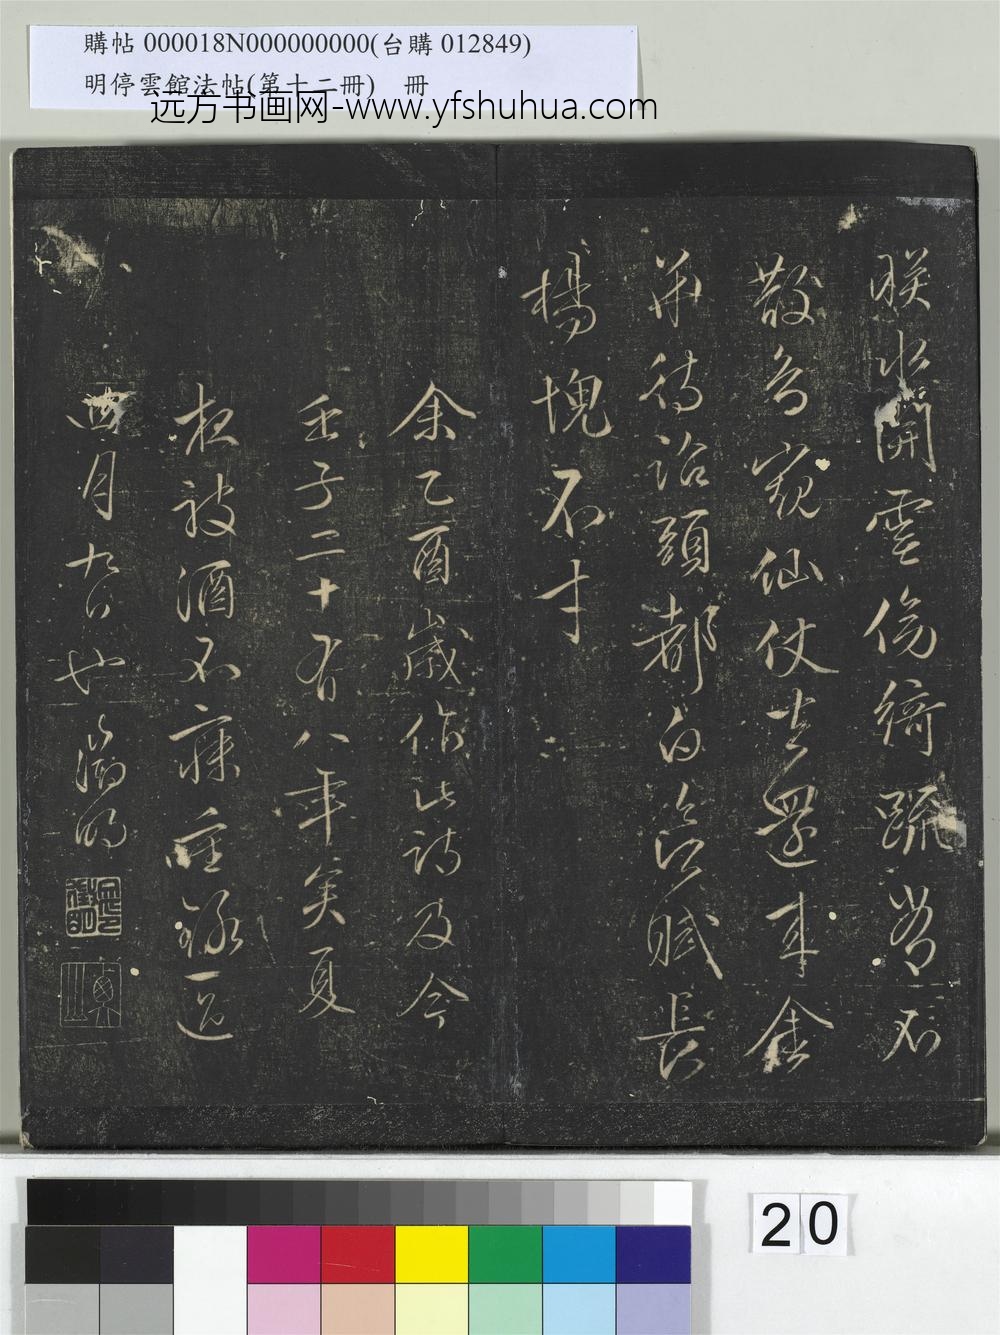 購帖 000018N000000000(台購 012849)
明停雲館法帖(第十二冊)　冊
远方书画网-www.yfshuhua.com
映水開雲傍綺疏留不
散鳥窺仙仗去還來金
華待詔頭都白欲賦長
楊愧不才
余乙酉歲作此詩及今
壬子二十有八年矣夏
夜被酒不寐重錄一過
四月九日也 徵明
衡山
20